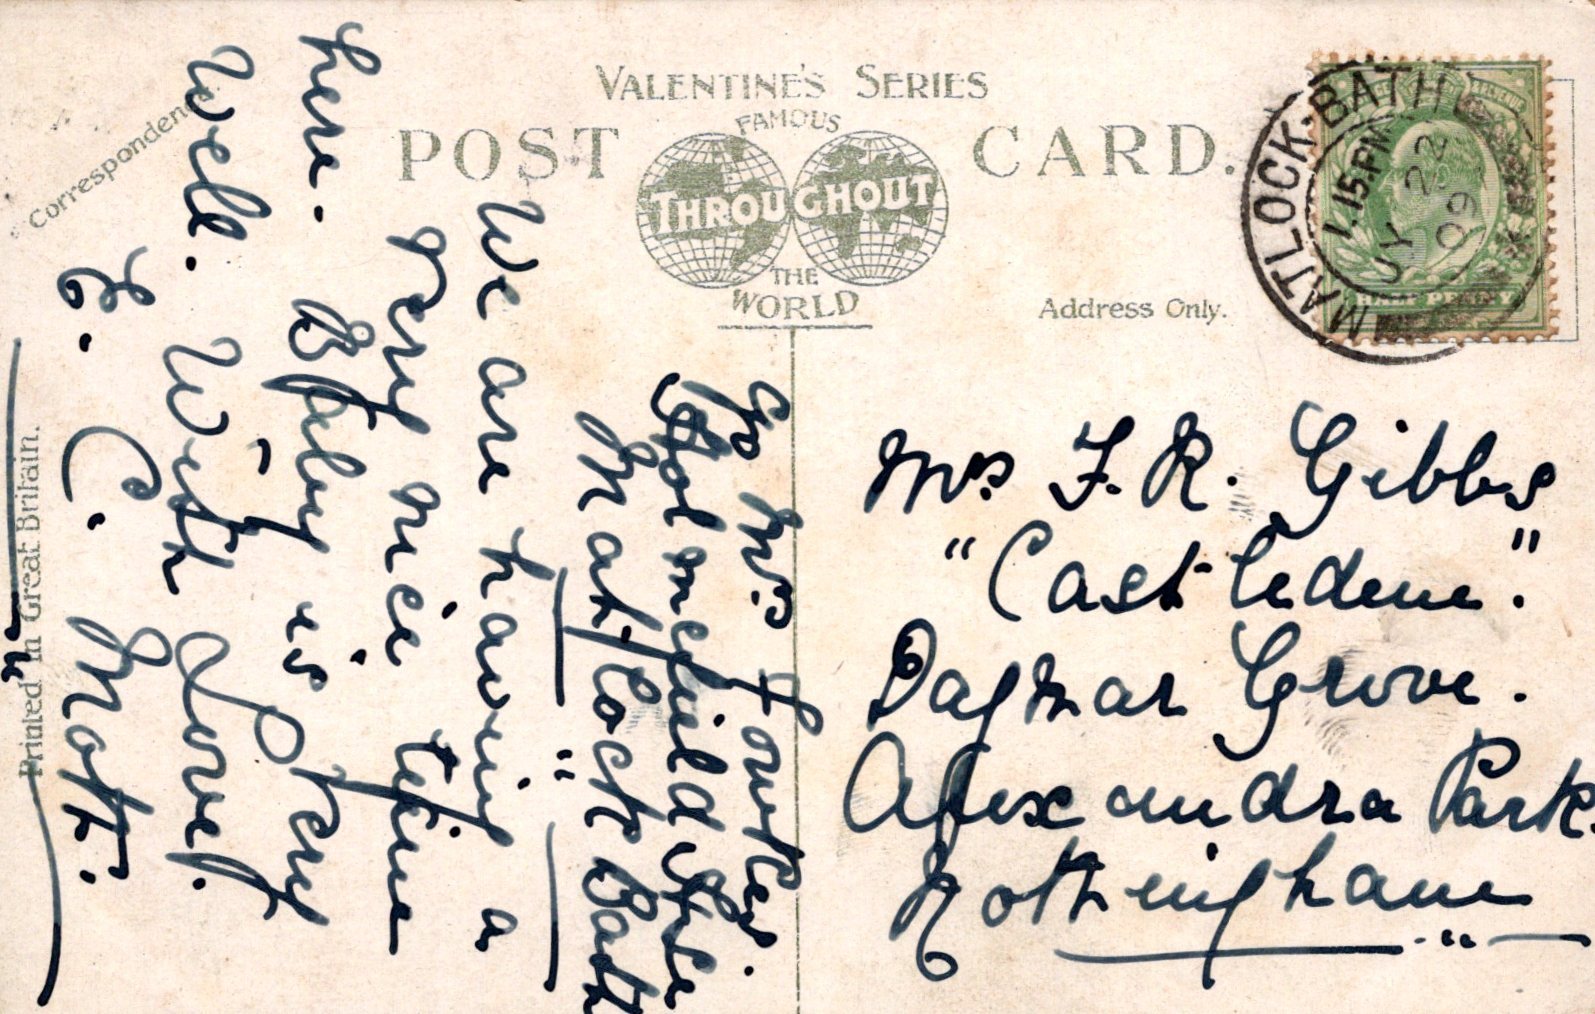 VALENTINE'S SERIES
FAMOUS
POST CARD.
THROUGHOUT
THE
WORLD
Correspondence.
Address Only.
Printed in Great Britain.
MATLOCK-BATH
1.15 PM
JY 22
09
HALF PENNY
Go Mrs Fowkes.
Holmefield
Mat-lock Bath
We are having a
very nice time
here. Baby is very
well. With Love.
E. C. Mott.
Mrs F. R. Gibbs
"Castledene".
Dagmar Grove.
Alexandra Park.
Nottingham